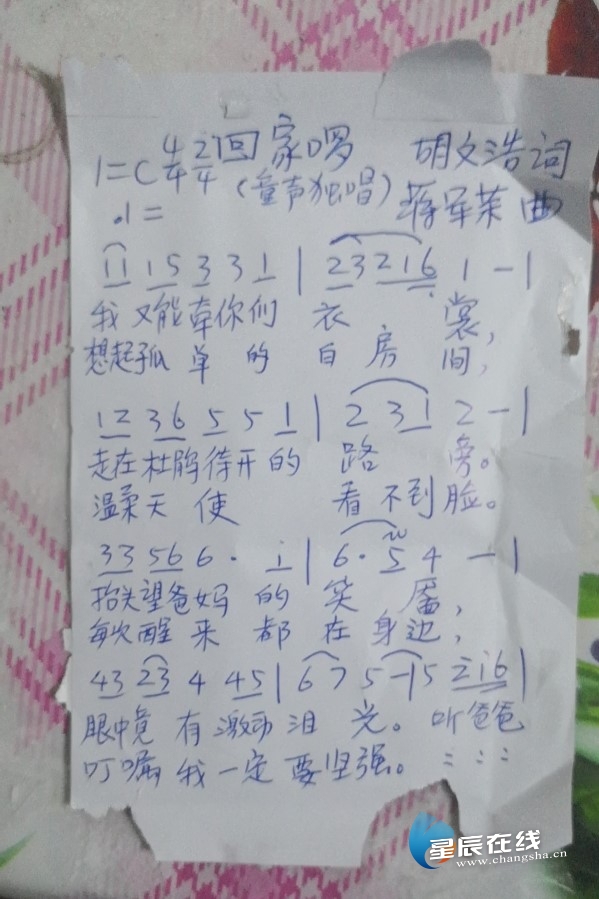 1=C 4/4 2/4 回家啰 胡文浩词
♩= (童声独唱) 蒋军荣曲
11 15 3 3 1 | 23216 1 - |
我又能牵你们 衣 裳,
想起孤单的白房间,
12 36 5 5 1 | 2 31 2 - |
走在杜鹃待开的 路 旁。
温柔天使 看不到脸。
33 56 6 · i | 6 · 5 4 - |
抬头望爸妈的笑 靥,
每次醒来都在身边,
43 23 4 45 | 67 5 - | 5 216 |
眼中竟有激动泪光。听爸爸
叮嘱我一定要坚强。:::
星辰在线
www.changsha.cn